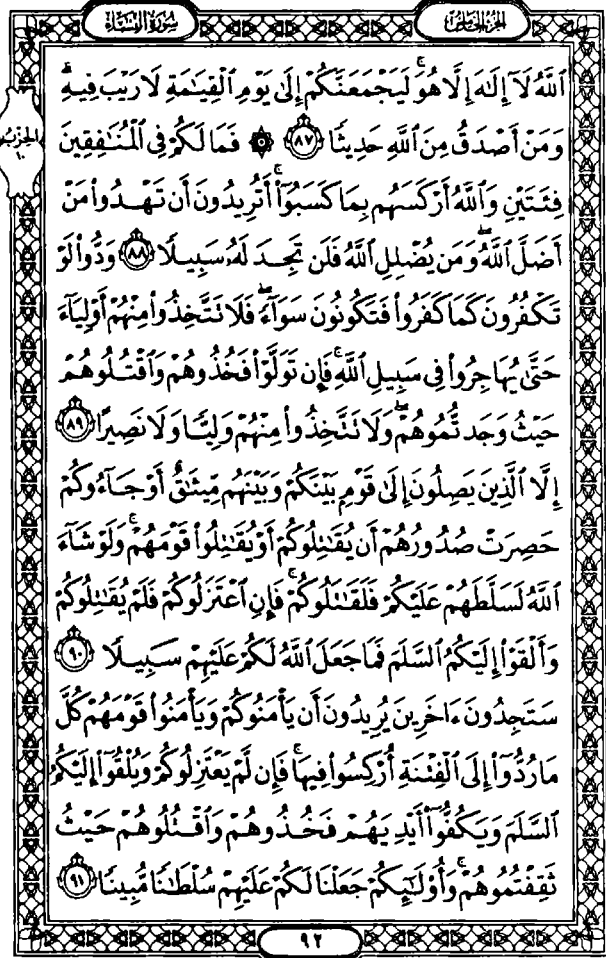 سُورَةُ النِّسَاءِ
الجُزْءُ الخَامِسُ
ٱللَّهُ لَآ إِلَٰهَ إِلَّا هُوَۚ لَيَجْمَعَنَّكُمْ إِلَىٰ يَوْمِ ٱلْقِيَٰمَةِ لَا رَيْبَ فِيهِۗ
وَمَنْ أَصْدَقُ مِنَ ٱللَّهِ حَدِيثًا ٨٧ ۞ فَمَا لَكُمْ فِى ٱلْمُنَٰفِقِينَ
الحِزْبُ
١٠
فِئَتَيْنِ وَٱللَّهُ أَرْكَسَهُم بِمَا كَسَبُوٓا۟ۚ أَتُرِيدُونَ أَن تَهْدُوا۟ مَنْ
أَضَلَّ ٱللَّهُۖ وَمَن يُضْلِلِ ٱللَّهُ فَلَن تَجِدَ لَهُۥ سَبِيلًا ٨٨ وَدُّوا۟ لَوْ
تَكْفُرُونَ كَمَا كَفَرُوا۟ فَتَكُونُونَ سَوَآءًۖ فَلَا تَتَّخِذُوا۟ مِنْهُمْ أَوْلِيَآءَ
حَتَّىٰ يُهَاجِرُوا۟ فِى سَبِيلِ ٱللَّهِۚ فَإِن تَوَلَّوْا۟ فَخُذُوهُمْ وَٱقْتُلُوهُمْ
حَيْثُ وَجَدتُّمُوهُمْۖ وَلَا تَتَّخِذُوا۟ مِنْهُمْ وَلِيًّا وَلَا نَصِيرًا ٨٩
إِلَّا ٱلَّذِينَ يَصِلُونَ إِلَىٰ قَوْمٍۭ بَيْنَكُمْ وَبَيْنَهُم مِّيثَٰقٌ أَوْ جَآءُوكُمْ
حَصِرَتْ صُدُورُهُمْ أَن يُقَٰتِلُوكُمْ أَوْ يُقَٰتِلُوا۟ قَوْمَهُمْۚ وَلَوْ شَآءَ
ٱللَّهُ لَسَلَّطَهُمْ عَلَيْكُمْ فَلَقَٰتَلُوكُمْۚ فَإِنِ ٱعْتَزَلُوكُمْ فَلَمْ يُقَٰتِلُوكُمْ
وَأَلْقَوْا۟ إِلَيْكُمُ ٱلسَّلَمَ فَمَا جَعَلَ ٱللَّهُ لَكُمْ عَلَيْهِمْ سَبِيلًا ٩٠
سَتَجِدُونَ ءَاخَرِينَ يُرِيدُونَ أَن يَأْمَنُوكُمْ وَيَأْمَنُوا۟ قَوْمَهُمْ كُلَّ
مَا رُدُّوٓا۟ إِلَى ٱلْفِتْنَةِ أُرْكِسُوا۟ فِيهَاۚ فَإِن لَّمْ يَعْتَزِلُوكُمْ وَيُلْقُوٓا۟ إِلَيْكُمُ
ٱلسَّلَمَ وَيَكُفُّوٓا۟ أَيْدِيَهُمْ فَخُذُوهُمْ وَٱقْتُلُوهُمْ حَيْثُ
ثَقِفْتُمُوهُمْۚ وَأُو۟لَٰٓئِكُمْ جَعَلْنَا لَكُمْ عَلَيْهِمْ سُلْطَٰنًا مُّبِينًا ٩١
٩٢